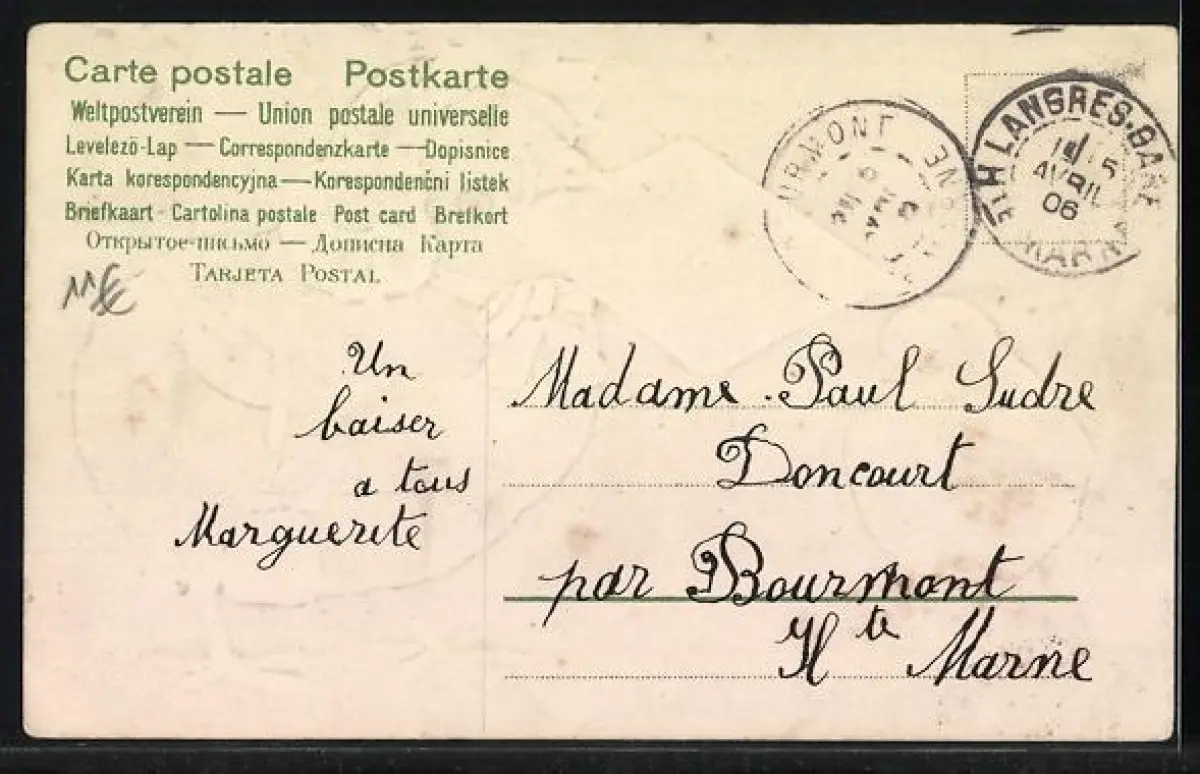 Carte postale Postkarte
Weltpostverein — Union postale universelle
Levelező-Lap — Correspondenzkarte — Dopisnice
Karta korespondencyjna — Korespondenční listek
Briefkaart - Cartolina postale Post card Brefkort
Открытое-письмо — Дописна Карта
Tarjeta Postal
LANGRES-GARE
AVRIL
06
Un
baiser
a tous
Marguerite
Madame Paul Sudre
Doncourt
par Bourmont
Hte Marne